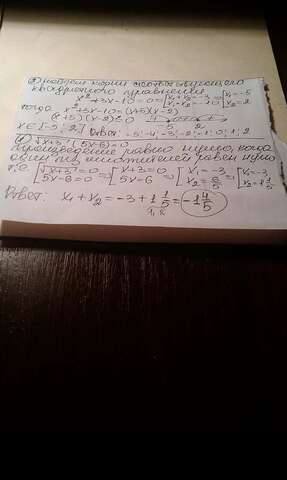 ③ найдем корни соответствующего
квадратного уравнения
x²+3x-10=0 ⇒ [x₁+x₂=-3 x₁·x₂=-10 ⇒ [x₁=-5 x₂=2
тогда x²+3x-10=(x+5)(x-2)
(x+5)(x-2)≤0 + - + -5 2
x∈[-5;2] Ответ: -5;-4;-3;-2;-1;0;1;2
④ √x+3 · (5x-6)=0
Произведение равно нулю, когда
один из множителей равен нулю
т.е. [√x+3=0 5x-6=0 ⇒ [x+3=0 5x=6 ⇒ [x₁=-3 x₂=6/5 ⇒ [x₁=-3 x₂=1 1/5
Ответ: x₁+x₂=-3+1 1/5=-1 4/5
1,2